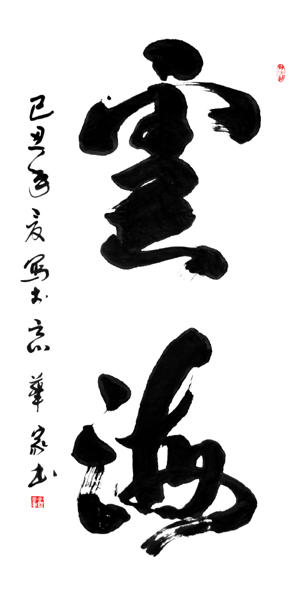 雲海
己丑年夏寫於京華家書